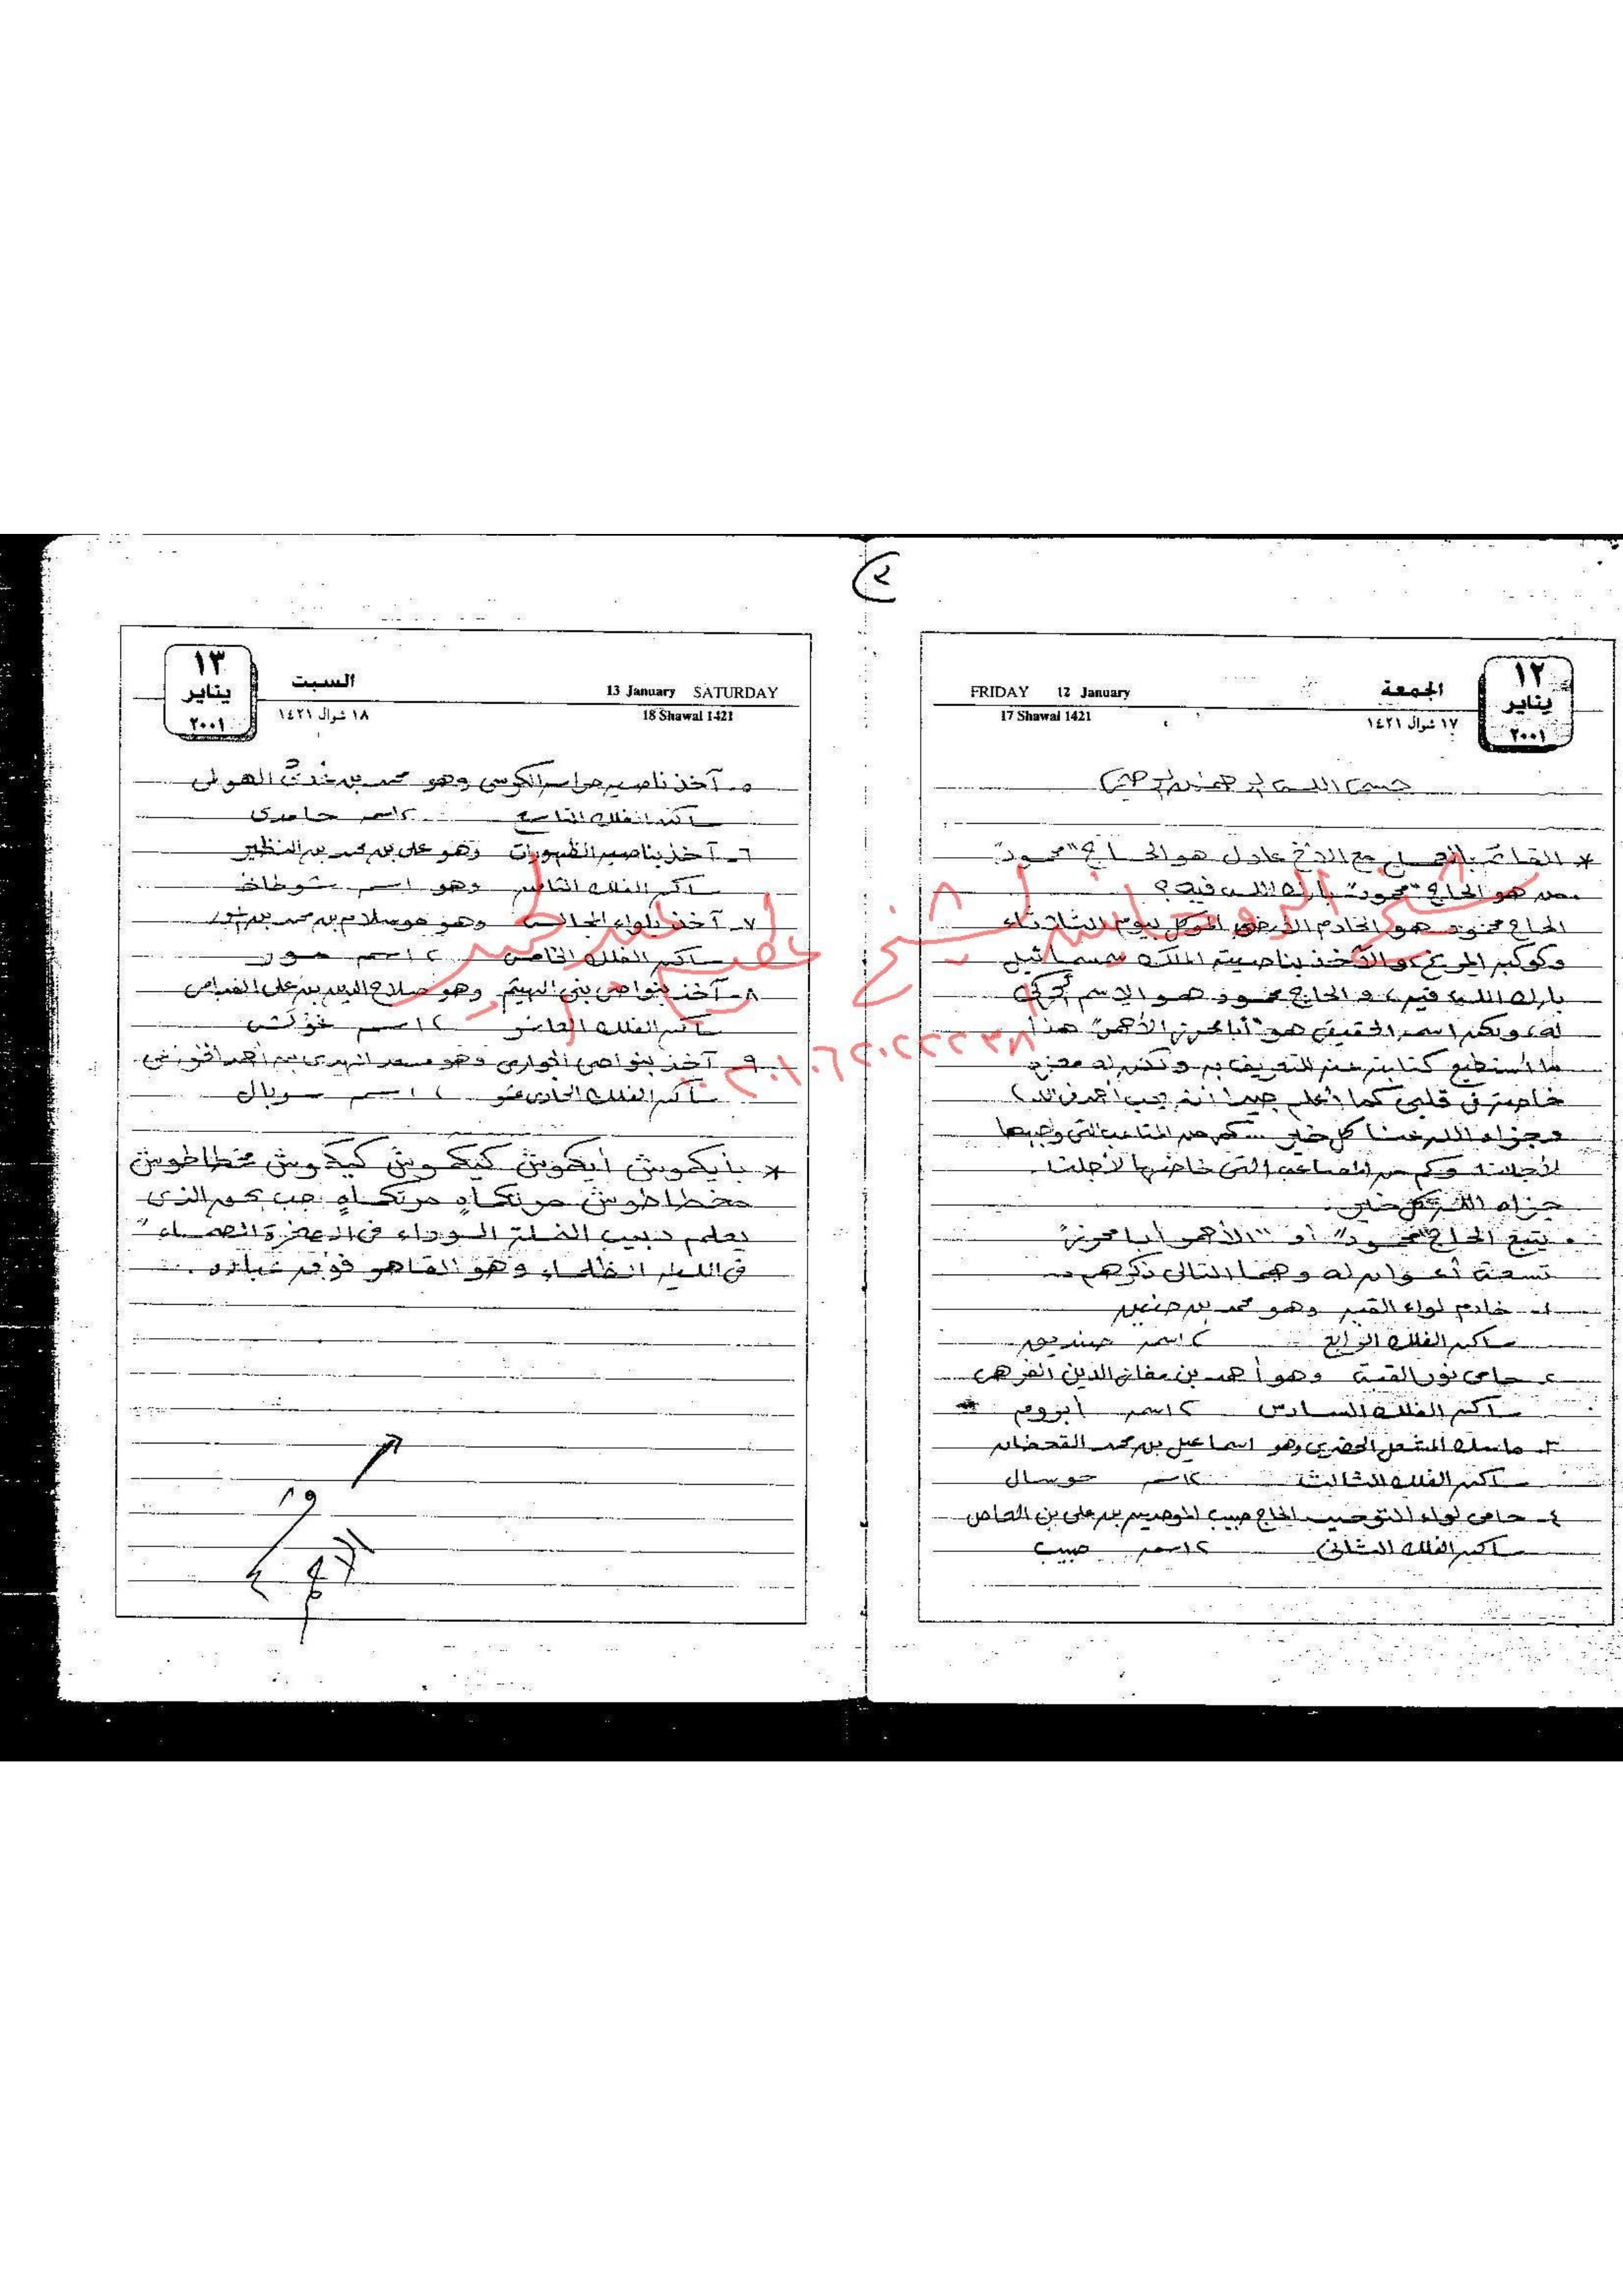 ٢
١٢
يناير
٢٠٠١
الجمعة
١٧ شوال ١٤٢١
FRIDAY 12 January
17 Shawal 1421
بسم الله الرحمن الرحيم
* القائم بالعمل مع الأخ عادل هو الحاج "محمود"
من هو الحاج "محمود" بارك الله فيه؟
الحاج محمود هو الخادم الأرضى الموكل بيوم الثلاثاء
وكوكبه المريخ، والآخذ بناصيته الملك سمسمائيل
بارك الله فيه، و الحاج محمود هو الاسم الحركى
له، ولكن اسمه الحقيقى هو "أبا محرز الأحمر" هذا
ما أستطيع كتابته عنه للتعريف به ولكن له معزة
خاصة فى قلبى كما أعلم جيداً أنه يحب أحمد فى الله
وجزاه الله عنا كل خير .. كم من المتاعب التى واجهها
لأجلنا وكم من المصاعب التى خاضها لأجلنا.
جزاه الله كل خير.
. يتبع الحاج "محمود" أو "الأحمر أبا محرز"
تسعة أعوان له وهما التالى ذكرهم:-
١- خادم لواء القبه وهو محمد بن حنين
ساكن الفلك الرابع ٢ اسمه
٢- حامى نور القبة وهو أحمد بن الدين
ساكن الفلك السادس ٢ اسمه أبروم
٣- ماسك المشعل الحضرى وهو اسماعيل بن محمد
ساكن الفلك الثالث ٢ اسمه حوسال
٤- حامى لواء التوحيد الحاج حبيب الموحدين بن على بن العاص
ساكن الفلك الثانى ٢ اسمه حبيب
١٣
يناير
٢٠٠١
السبت
١٨ شوال ١٤٢١
13 January SATURDAY
18 Shawal 1421
٥- آخذ ناصيه حراس الكرسى وهو محمد بن الهولى
ساكن الفلك التاسع ٢ اسمه حامدى
٦- آخذ بناصيه الظهورات وهو على بن محمد بن المنظير
ساكن الفلك الثامن وهو اسمه شوطاخ
٧- آخذ بلواء المجالس وهو هو سلام بن محمد بن
ساكن الفلك الخامس ٢ اسمه حور
٨- آخذ بنواصى بنى الهيثم وهو صلاح الدين بن على
ساكن الفلك العاشر ٢ اسمه
٩- آخذ بنواصى الجوارى وهو سعد المهدى بن أحمد
ساكن الفلك الحادى عشر ٢ اسمه سوبال
* بأيكموش أيكموش كيكموش كيكموش مخطاطوش
مخطاطوش مرتكاهٍ مرتكاهٍ جب بحق الذى
يعلم دبيب النملة السوداء فى الصخرة الصماء
فى الليله الظلماء وهو القاهر فوق عباده.
شيخ الروحانيه الشيخ
٠٠٢٠١٠٦٢٠٢٢٢٣٨